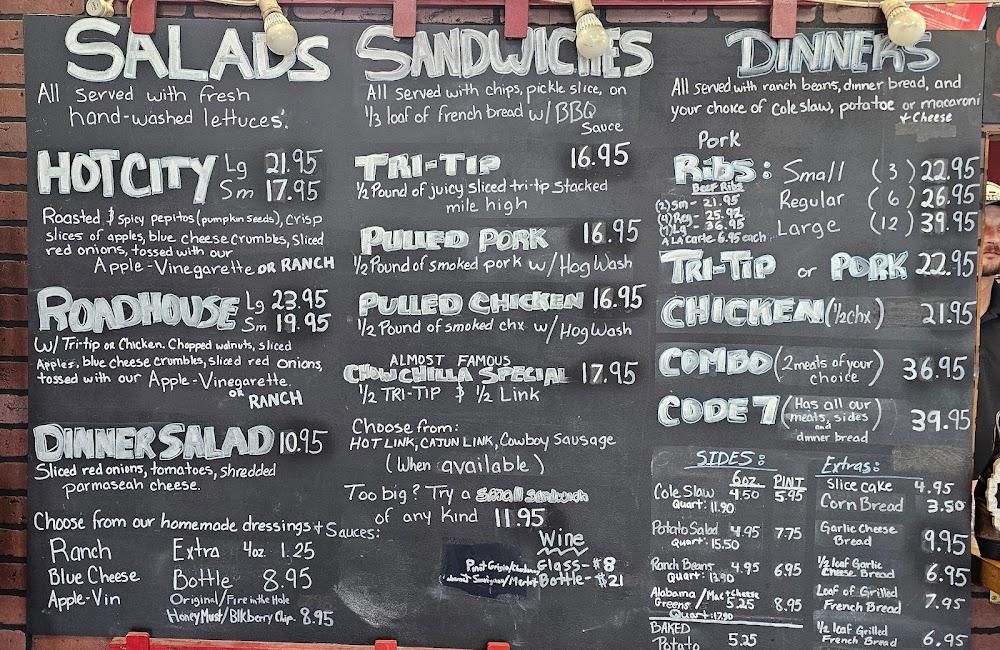 SALADS
All served with fresh
hand-washed lettuces.
HOT CITY Lg 21.95
Sm 17.95
Roasted & Spicy pepitos (pumpkin seeds), crisp
slices of apples, blue cheese crumbles, sliced
red onions, tossed with our
Apple-Vinegarette OR RANCH
ROADHOUSE Lg 23.95
Sm 19.95
W/ Tri-tip or Chicken. Chopped walnuts, sliced
Apples, blue cheese crumbles, sliced red onions,
tossed with our Apple-Vinegarette.
OR RANCH
DINNER SALAD 10.95
Sliced red onions, tomatoes, shredded
parmaseah cheese.
Choose from our homemade dressings + Sauces:
Ranch Extra 4oz 1.25
Blue Cheese Bottle 8.95
Apple-Vin Original/Fire in the Hole
Honey Must/Blkberry Chip. 8.95
SANDWICHES
All served with chips, pickle slice, on
1/3 loaf of french bread w/ BBQ
Sauce
TRI-TIP 16.95
1/2 Pound of juicy sliced tri-tip stacked
mile high
PULLED PORK 16.95
1/2 Pound of smoked pork w/ Hog Wash
PULLED CHICKEN 16.95
1/2 Pound of smoked chx w/ Hog Wash
ALMOST FAMOUS
CHOWCHILLA SPECIAL 17.95
1/2 TRI-TIP & 1/2 Link
Choose from:
HOT LINK, CAJUN LINK, Cowboy Sausage
(When available)
Too big? Try a small sandwich
of any Kind 11.95
Wine
Pinot Grigio/ Glass- $8
/Merlot Bottle- $21
DINNERS
All served with ranch beans, dinner bread, and
your choice of Coleslaw, potatoe or macaroni
+ Cheese
Pork
RIBS: Small (3) 22.95
Regular (6) 26.95
Large (12) 39.95
Beef Ribs
(2) Sm - 21.95
(4) Reg - 25.92
Lg - 36.95
A La Carte 6.95 each
TRI-TIP or PORK 22.95
CHICKEN (1/2 chx) 21.95
COMBO (2 meats of your
choice) 36.95
CODE 7 (Has all our
meats, sides
and
dinner bread) 39.95
SIDES:
6oz. PINT
Cole Slaw 4.50 5.95
Quart: 11.90
Potato Salad 4.95 7.75
Quart: 15.50
Ranch Beans 4.95 6.95
Quart: 13.90
Alabama Greens / Mac+Cheese 5.25 8.95
Quart: 17.90
BAKED
Potato 5.25
Extras:
Slice Cake 4.95
Corn Bread 3.50
Garlic Cheese
Bread 9.95
1/2 loaf Garlic
Cheese Bread 6.95
Loaf of Grilled
French Bread 7.95
1/2 loaf Grilled
French Bread 6.95